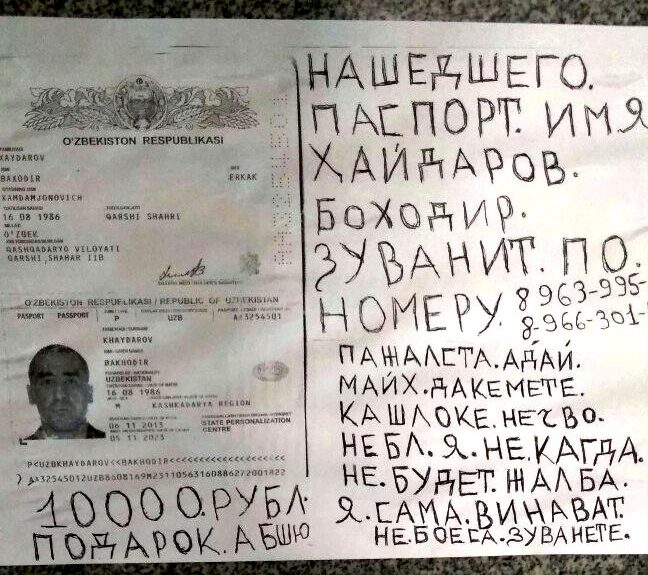 O'ZBEKISTON RESPUBLIKASI
XAYDAROV
BAXODIR
ERKAK
XAMDAMJONOVICH
16 08 1986
QARSHI SHAHRI
O'ZBEK
QASHQADARYO VILOYATI
QARSHI SHAHAR IIB
O'ZBEKISTON RESPUBLIKASI / REPUBLIC OF UZBEKISTAN
PASPORT PASSPORT
P
UZB
KHAYDAROV
BAKHODIR
UZBEKISTAN
16 08 1986
M
KASHKADARYA REGION
06 11 2013
05 11 2023
STATE PERSONALIZATION
CENTRE
P<UZBKHAYDAROV<<BAKHODIR<<<<<<<<<<<<<<<<<<<<
10000.РУБЛ.
ПОДАРОК.АБШЮ
НАШЕДШЕГО.
ПАСПОРТ. ИМЯ
ХАЙДАРОВ.
БОХОДИР.
ЗУВАНИТ. ПО.
НОМЕРУ. 8963-995-
8-966-301-
ПАЖАЛСТА.АДАЙ.
МАЙХ.ДАКЕМЕТЕ.
КАШЛОКЕ.НЕЧВО.
НЕБЛ.Я.НЕ.КАГДА.
НЕ.БУДЕТ.ЖАЛБА.
Я.САМА.ВИНАВАТ.
НЕ.БОЕСА.ЗУВАНЕТЕ.